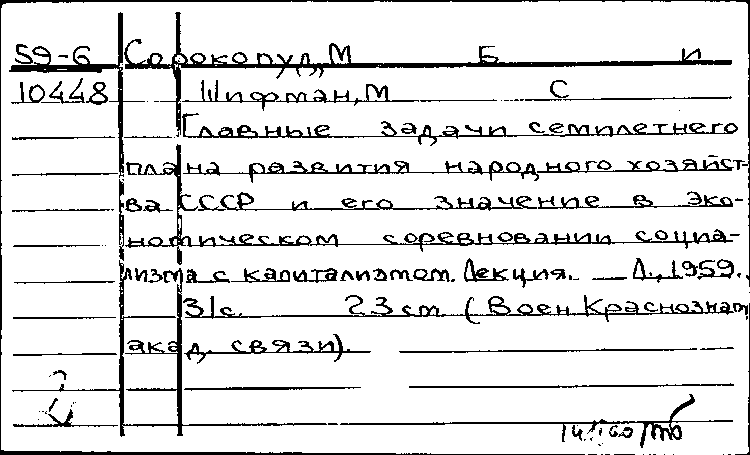 59-6 Сорокопуд, М Б и
10448 Шифман, М С
Главные задачи семилетнего
плана развития народного хозяйст-
ва СССР и его значение в эко-
номическом соревновании социа-
лизма с капитализмом. Лекция. — Л., 1959.
31 с. 23 см (Воен Краснознам
акад. связи).